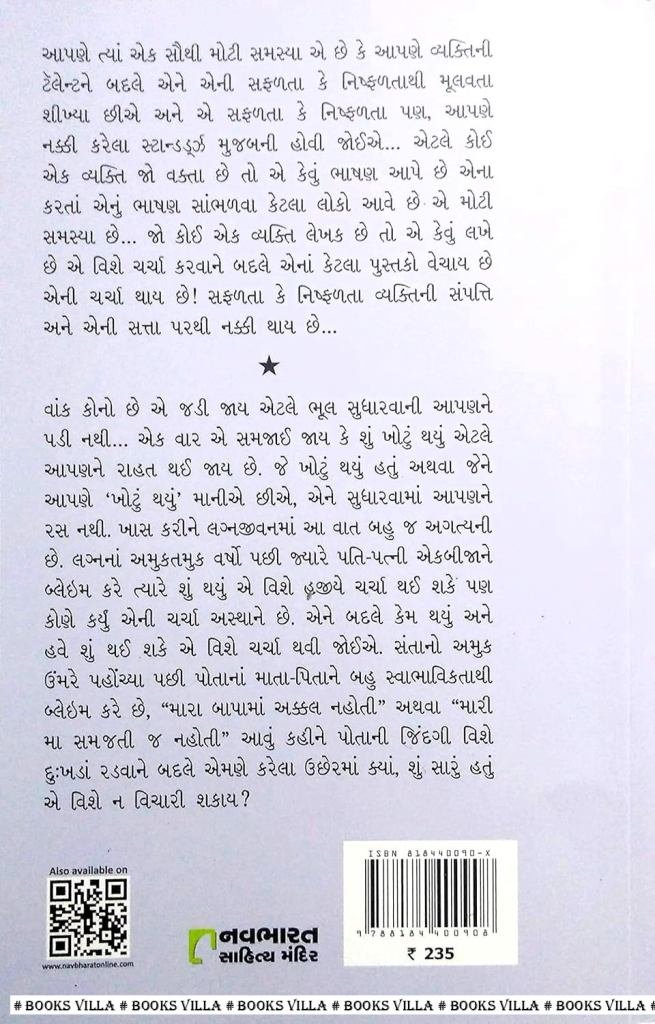 આપણે ત્યાં એક સૌથી મોટી સમસ્યા એ છે કે આપણે વ્યક્તિની
ટૅલેન્ટને બદલે એને એની સફળતા કે નિષ્ફળતાથી મૂલવતા
શીખ્યા છીએ અને એ સફળતા કે નિષ્ફળતા પણ, આપણે
નક્કી કરેલા સ્ટાન્ડર્ડ્ઝ મુજબની હોવી જોઈએ... એટલે કોઈ
એક વ્યક્તિ જો વક્તા છે તો એ કેવું ભાષણ આપે છે એના
કરતાં એનું ભાષણ સાંભળવા કેટલા લોકો આવે છે એ મોટી
સમસ્યા છે... જો કોઈ એક વ્યક્તિ લેખક છે તો એ કેવું લખે
છે એ વિશે ચર્ચા કરવાને બદલે એનાં કેટલા પુસ્તકો વેચાય છે
એની ચર્ચા થાય છે! સફળતા કે નિષ્ફળતા વ્યક્તિની સંપત્તિ
અને એની સત્તા પરથી નક્કી થાય છે...
★
વાંક કોનો છે એ જડી જાય એટલે ભૂલ સુધારવાની આપણને
પડી નથી... એક વાર એ સમજાઈ જાય કે શું ખોટું થયું એટલે
આપણને રાહત થઈ જાય છે. જે ખોટું થયું હતું અથવા જેને
આપણે ‘ખોટું થયું’ માનીએ છીએ, એને સુધારવામાં આપણને
રસ નથી. ખાસ કરીને લગ્નજીવનમાં આ વાત બહુ જ અગત્યની
છે. લગ્નનાં અમુકતમુક વર્ષો પછી જ્યારે પતિ-પત્ની એકબીજાને
બ્લેઇમ કરે ત્યારે શું થયું એ વિશે હજીયે ચર્ચા થઈ શકે પણ
કોણે કર્યું એની ચર્ચા અસ્થાને છે. એને બદલે કેમ થયું અને
હવે શું થઈ શકે એ વિશે ચર્ચા થવી જોઈએ. સંતાનો અમુક
ઉંમરે પહોંચ્યા પછી પોતાનાં માતા-પિતાને બહુ સ્વાભાવિકતાથી
બ્લેઇમ કરે છે, “મારા બાપામાં અક્કલ નહોતી” અથવા “મારી
મા સમજતી જ નહોતી” આવું કહીને પોતાની જિંદગી વિશે
દુઃખડાં રડવાને બદલે એમણે કરેલા ઉછેરમાં ક્યાં, શું સારું હતું
એ વિશે ન વિચારી શકાય?
Also available on
www.navbharatonline.com
નવભારત
સાહિત્ય મંદિર
ISBN 818440090-X
9 788184 400908
₹ 235
# BOOKS VILLA # BOOKS VILLA # BOOKS VILLA # BOOKS VILLA # BOOKS VILLA # BOOKS VILLA #